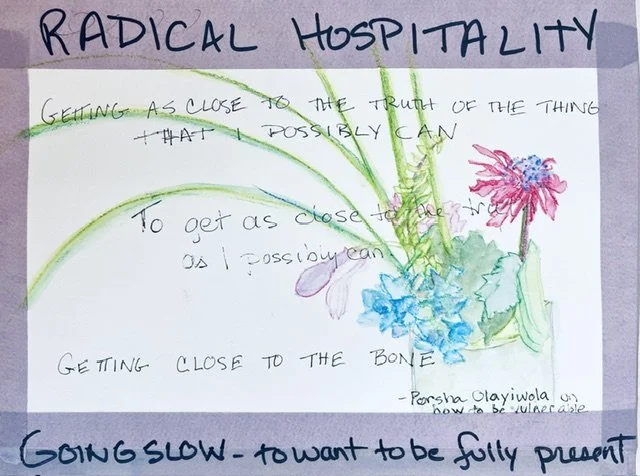 RADICAL HOSPITALITY
GETTING AS CLOSE TO THE TRUTH OF THE THING
THAT I POSSIBLY CAN
To get as close to the
as I possibly can
GETTING CLOSE TO THE BONE
- Porsha Olayiwola on
how to be vulnerable
GOING SLOW - to want to be fully present